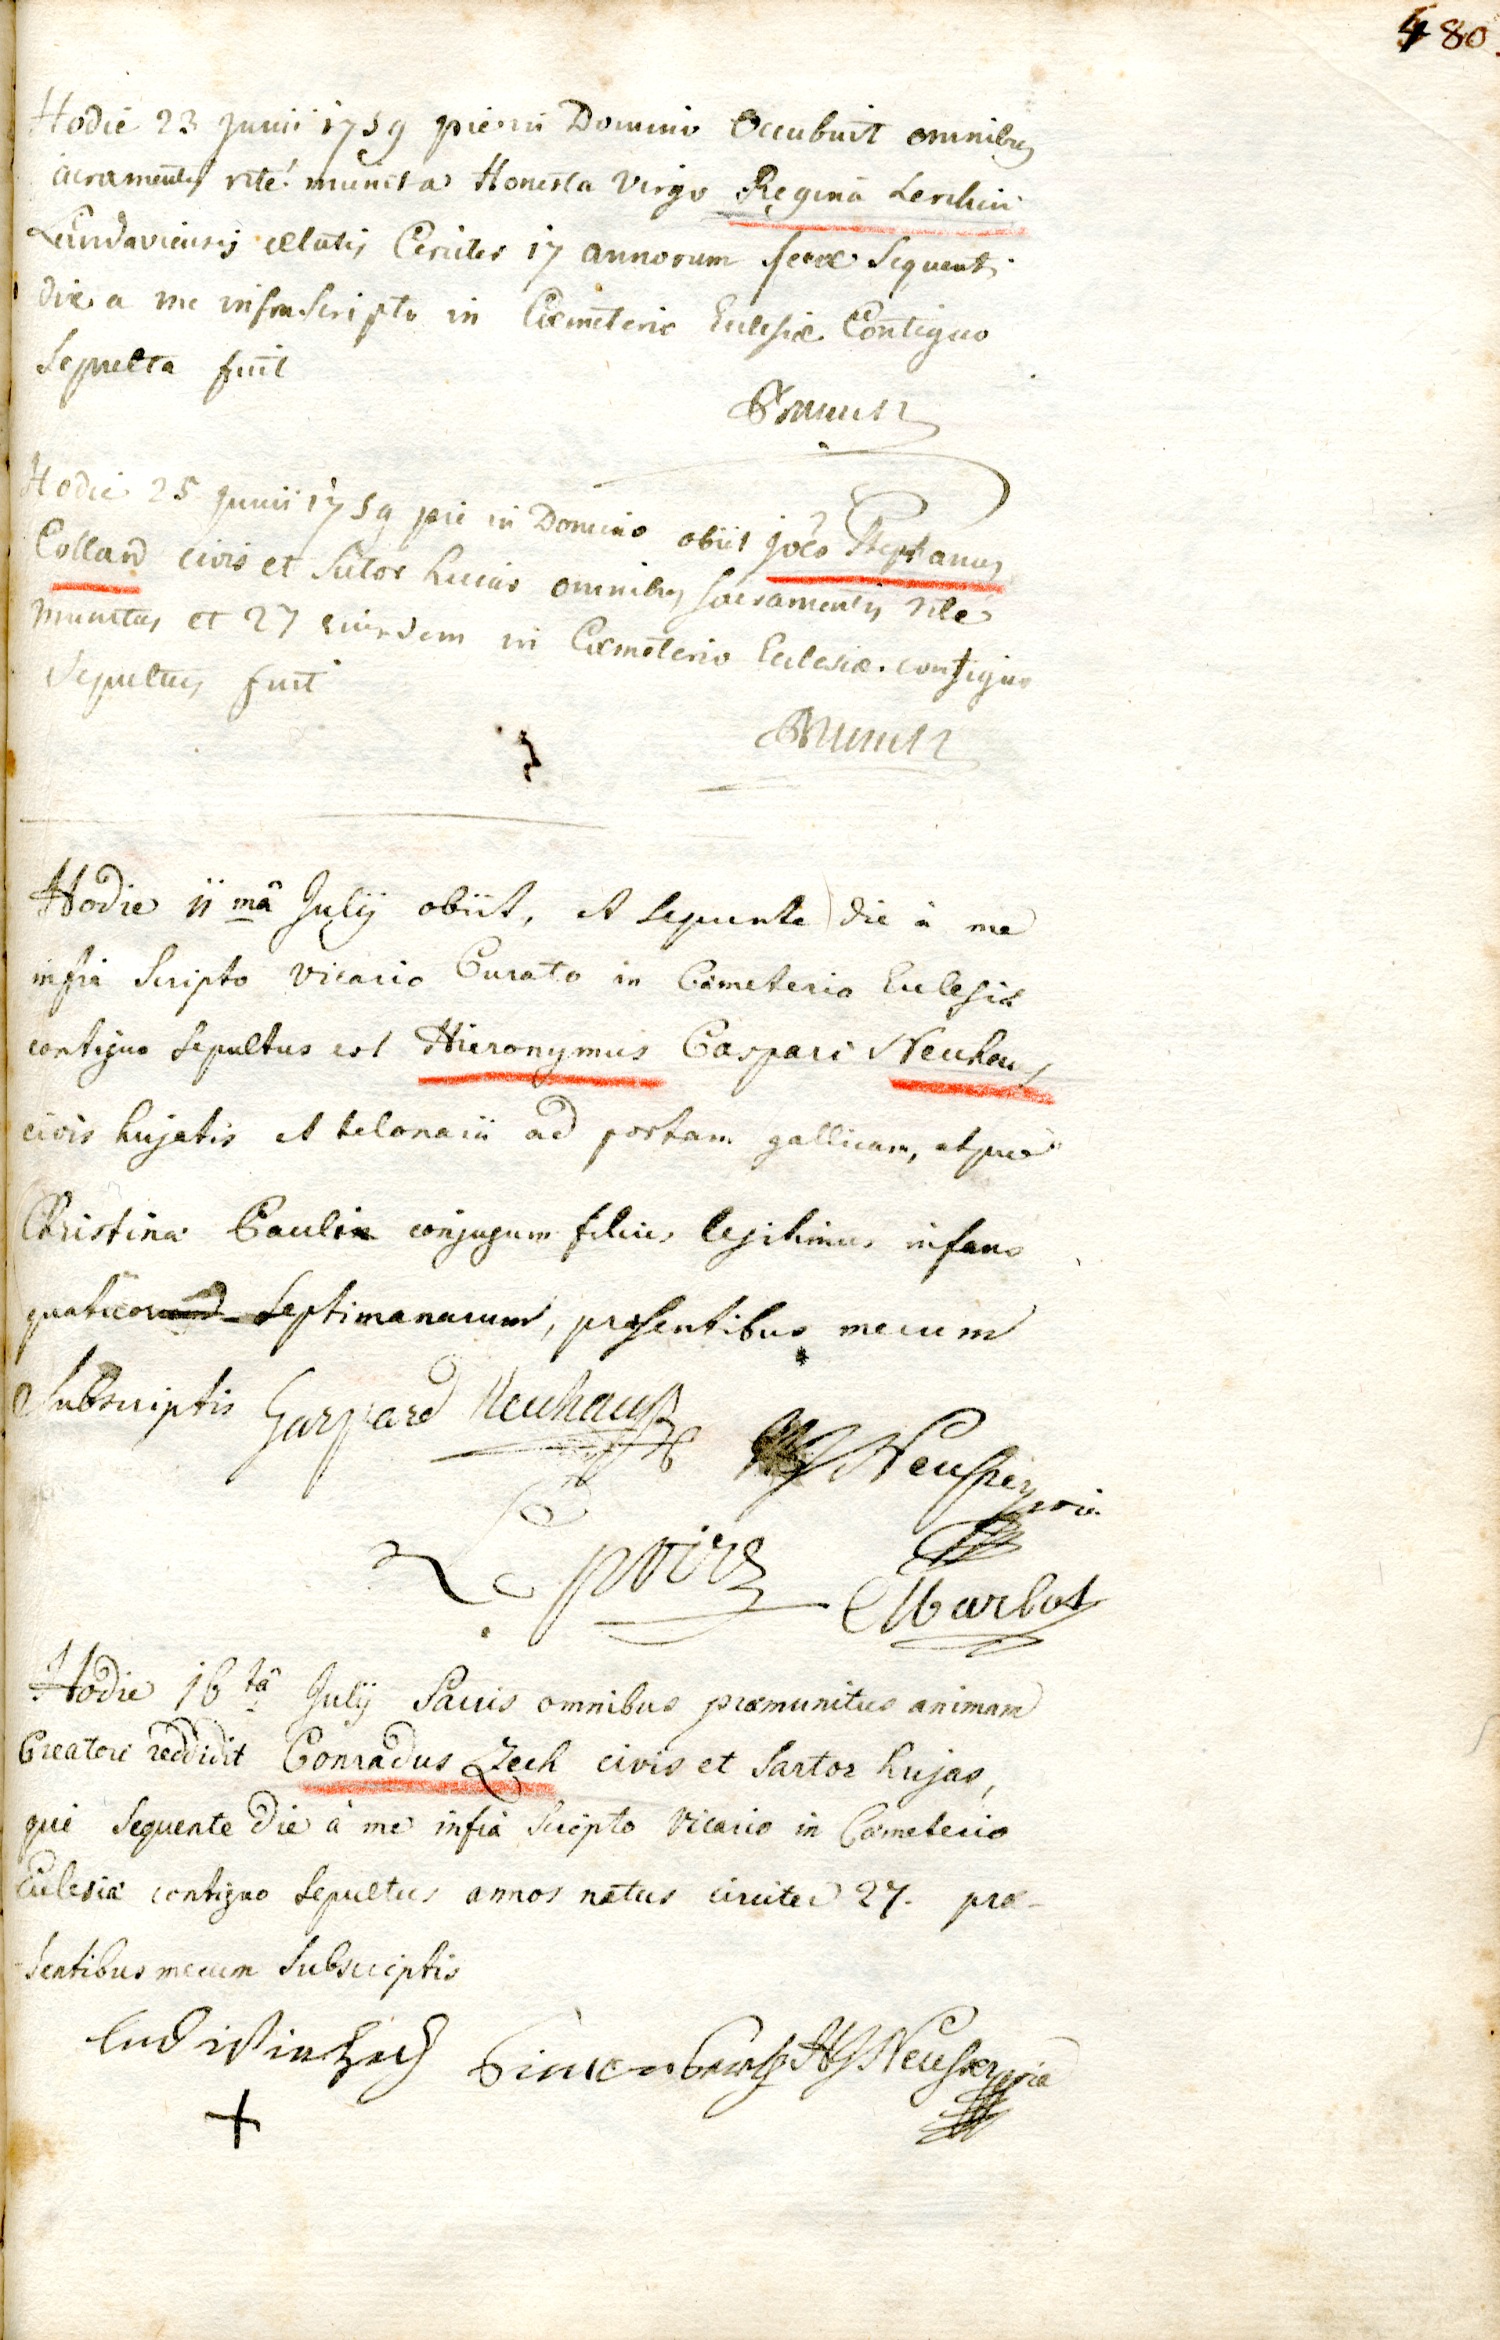 480.
Hodie 23 Junii 1759 pie in Domino Occubuit omnibus
sacramentis rite munita Honesta Virgo Regina Lerchin
Landaviensis ætatis Circiter 17 annorum feræ Sequenti
die a me infra Scripto in Cæmeterio Eclesiæ Contiguo
Sepulta fuit
Hodie 25 Junii 1759 pie in Domino obiit joês Stephanus
Colland civis et Sutor hucias omnibus sacramentis rite
munitus et 27 eiusdem in Cæmeterio Eclesiæ contiguo
Sepultus fuit
Hodie 11 mâ Julij obiit, et sequente die à me
infra Scripto vicario Curato in Cæmeterio Eclesiæ
contiguo Sepultus est Hieronymus Caspari Neuhaus
civis hujatis et telonarii ad portam gallicam, atque
Christinæ Paulin conjugum filius legitimus infans
quatuor Septimanarum, præsentibus mecum
Subscriptis Gaspard Neuhaus
Marbot
Hodie 16 tâ Julij Sacris omnibus præmunitus animam
Creatori reddidit Conradus Zech civis et Sartor hujas,
qui Sequente Die à me infra Scripto Vicario in Cæmeterio
Eclesiæ contiguo Sepultus annos natus circiter 27. præ-
sentibus mecum Subscriptis